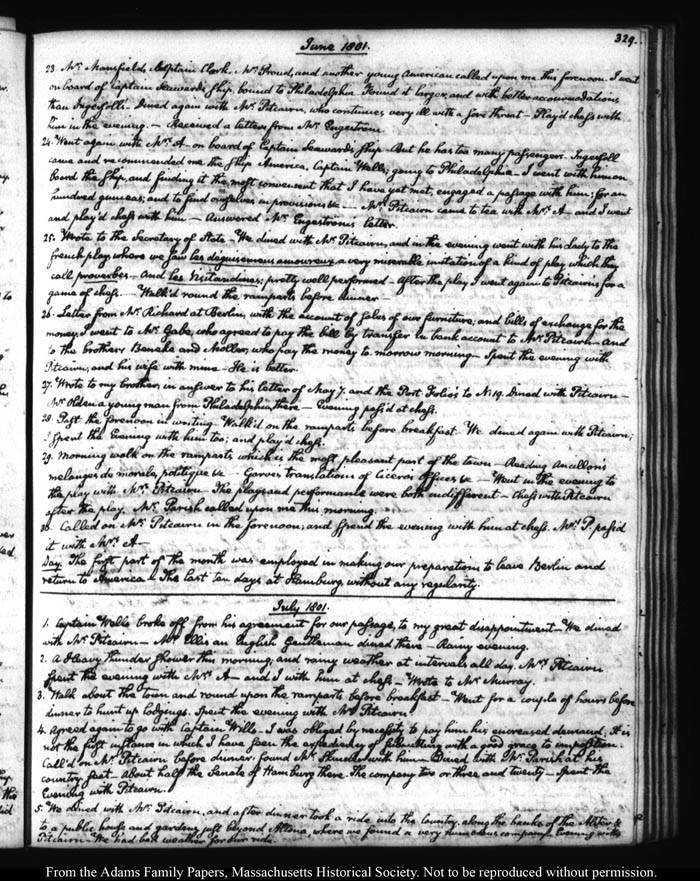 329.
June 1801.
23. Mr. Mansfield, Captain Clark, Mr. Proud, and another young American called upon me this forenoon. I went
on board of Captain Seaward's ship, bound to Philadelphia. Found it larger, and with better accommodations
than Ingersoll's. Dined again with Mr. Pitcairn, who continues very ill with a sore throat — Play'd chess with
him in the evening. — Received a letter from Mr. Engestrom.
24. Went again with Mrs. A— on board of Captain Seaward's ship — But he has too many passengers. Ingersoll
came and recommended me the ship America, Captain Wells; going to Philadelphia. I went with him on
board the ship, and finding it the most convenient that I have yet met, engaged a passage with him; for an
hundred guineas; and to find ourselves in provisions &c — Mrs. Pitcairn came to tea with Mrs. A— and I went
and play'd chess with him — Answered Mr. Engestrom's letter.
25. Wrote to the Secretary of State — We dined with Mr. Pitcairn, and in the evening went with his lady to the
french play, where we saw les déguisemens amoureux, a very miserable imitation of a kind of play which they
call proverbes — And les Visitandines; pretty well performed — After the play I went again to Pitcairn's for a
game of chess. — Walk'd round the ramparts before dinner —
26. Letter from Mr. Richard at Berlin, with the account of sales of our furniture, and bills of exchange for the
money. I went to Mr. Gabe, who agreed to pay the bill by transfer in bank account to Mr. Pitcairn — And
to the brothers Beneke and Moller, who pay the money to-morrow morning — Spent the evening with
Pitcairn, and his wife with mine — He is better.
27. Wrote to my brother, in answer to his letter of May 7. and the Port Folio's to N. 19. Dined with Pitcairn —
Mr. Olden a young man from Philadelphia, there — Evening pass'd at chess.
28. Past the forenoon in writing — Walk'd on the ramparts before breakfast — We dined again with Pitcairn;
I spent the evening with him too; and play'd chess.
29. Morning walk on the ramparts which is the most pleasant part of the town — Reading Ancillon's
melanges de morale, politique &c — Garve's translations of Cicero's Offices &c — Went in the evening to
the play with Mrs. Pitcairn — The plays and performance were both indifferent — Chess with Pitcairn
after the play. Mr. Parish called upon me this morning.
30. Called on Mr. Pitcairn in the forenoon; and spend the evening with him at chess. Mrs. P. pass'd
it with Mrs. A—
Day. The first part of the month was employed in making our preparations to leave Berlin and
return to America — The last ten days at Hamburg, without any regularity.
July 1801.
1. Captain Wells broke off from his agreement for our passage, to my great disappointment — We dined
with Mr. Pitcairn — Mr. Ellis an English Gentleman dined there — Rainy evening.
2. A Heavy thunder shower this morning, and rainy weather at intervals all day. Mrs. Pitcairn
spent the evening with Mrs. A— and I with him at chess — Wrote to Mr. Murray.
3. Walk about the town and round upon the ramparts before breakfast — Went for a couple of hours before
dinner to hunt up lodgings. Spent the evening with Mr. Pitcairn.
4. Agreed again to go with Captain Wills. I was obliged by necessity to pay him his encreased demand. It is
not the first instance in which I have seen the expediency of submitting with a good grace to imposition.
Call'd on Mr. Pitcairn before dinner; found Mr. with him — Dined with Mr. Parish at his
country seat — About half the Senate of Hamburg there. The company two or three, and twenty — Spent the
evening with Pitcairn.
5. We dined with Mr. Pitcairn, and after dinner took a ride into the country, along the banks of the Alster &
to a public house and gardens, just beyond Altona, where we found a very numerous company. Evening with
Pitcairn — We had bad weather for our ride.
From the Adams Family Papers, Massachusetts Historical Society. Not to be reproduced without permission.